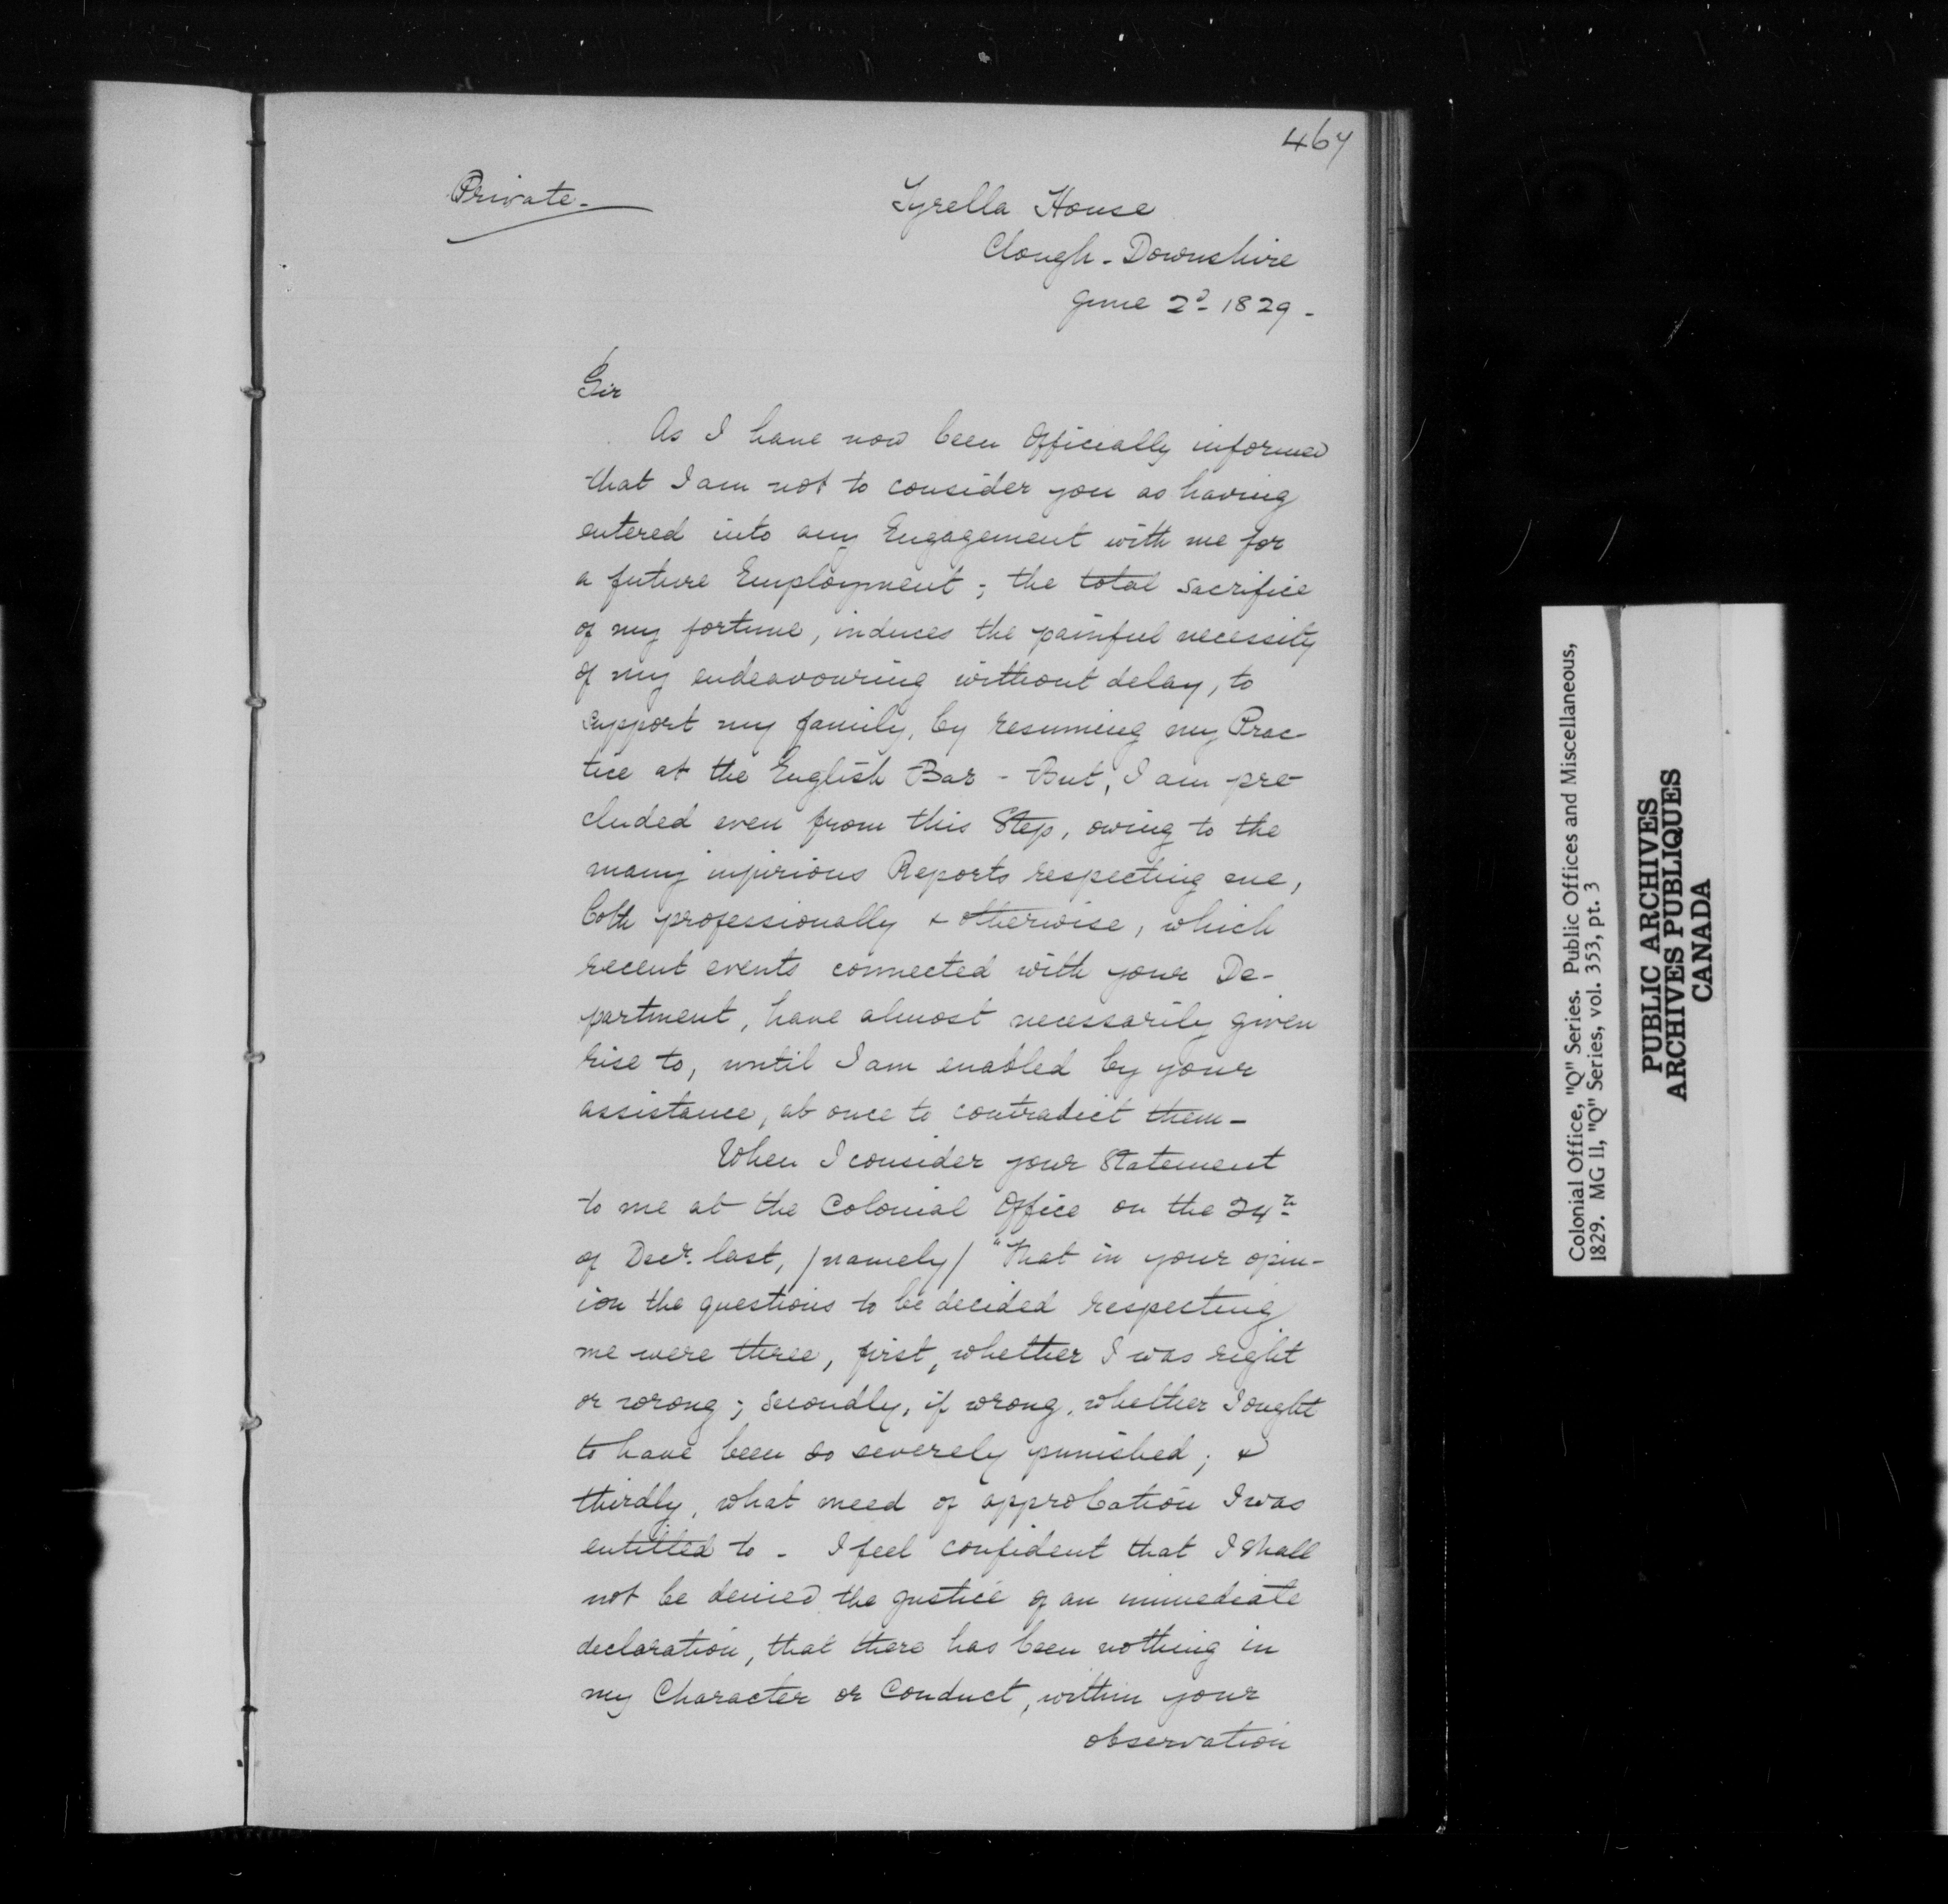 467
Private.
Tyrella House
Clough - Downshire
June 2d 1829.
Sir
As I have now been Officially informed
that I am not to consider you as having
entered into any Engagement with me for
a future Employment; the total sacrifice
of my fortune, induces the painful necessity
of my endeavouring without delay, to
support my family, by resuming my Prac-
tice at the English Bar - But, I am pre-
cluded even from this Step, owing to the
many injurious Reports respecting me,
both professionally & otherwise, which
recent events connected with your De-
partment, have almost necessarily given
rise to, until I am enabled by your
assistance, at once to contradict them -
When I consider your Statement
to me at the Colonial Office on the 24th
of Decr. last, /namely/ "That in your opin-
ion the questions to be decided respecting
me were three, first, whether I was right
or wrong; secondly, if wrong, whether I ought
to have been so severely punished; &
thirdly, what meed of approbation I was
entitled to - I feel confident that I shall
not be denied the justice of an immediate
declaration, that there has been nothing in
my Character or Conduct, within your
observation
Colonial Office, "Q" Series. Public Offices and Miscellaneous,
1829. MG 11, "Q" Series, vol. 353, pt. 3
PUBLIC ARCHIVES
ARCHIVES PUBLIQUES
CANADA